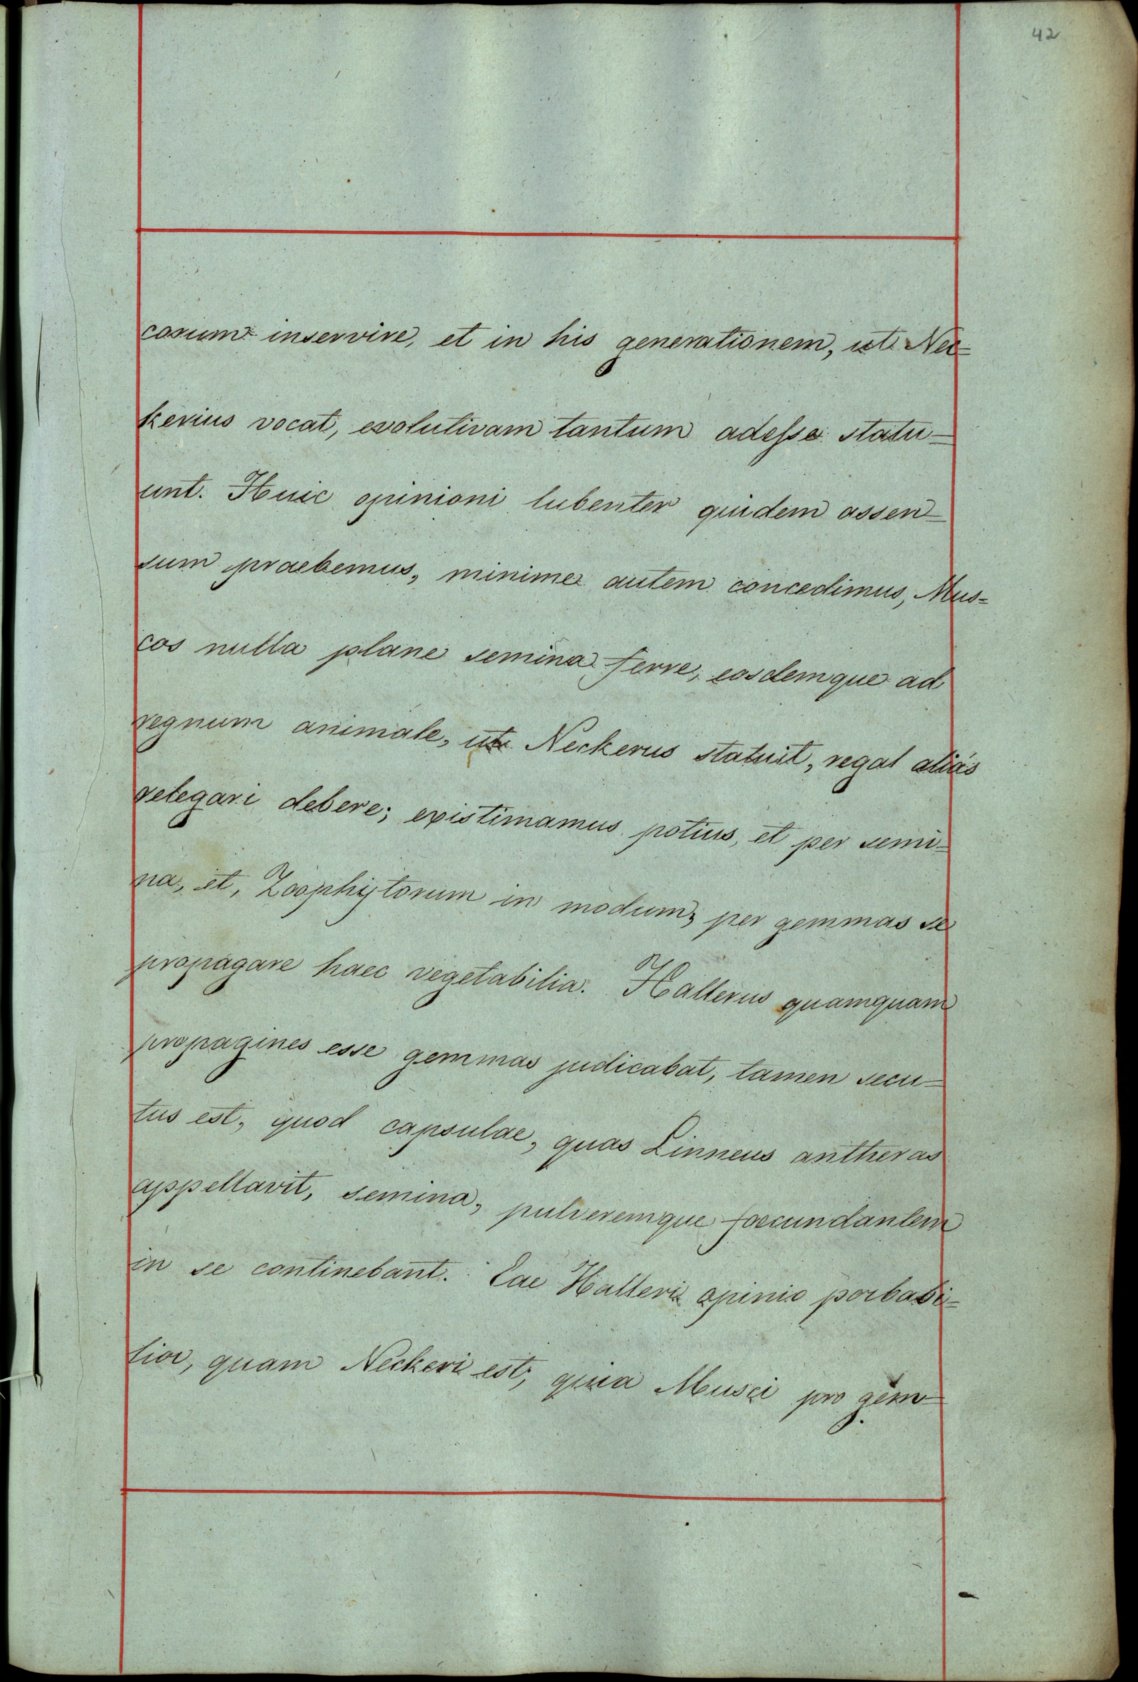 42
corum inservire, et in his generationem, ut Nec=
kerius vocat, evolutivam tantum adesse statu=
unt. Huic opinioni lubenter quidem assen=
sum praebemus, minime autem concedimus, Mus=
cos nulla plane semina ferre, eosdemque ad
regnum animale, ut Neckerus statuit, regal aliás
relegari debere; existimamus potius, et per semi=
na, et, Zoophytorum in modum, per gemmas se
propagare haec vegetabilia. Hallerus quamquam
propagines esse gemmas judicabat, tamen secu=
tus est, quod capsulae, quas Linneus antheras
appellavit, semina, pulveremque foecundantem
in se continebant. Eae Halleri opinio porbabi=
lior, quam Neckeri est; quia Musci pro gem=